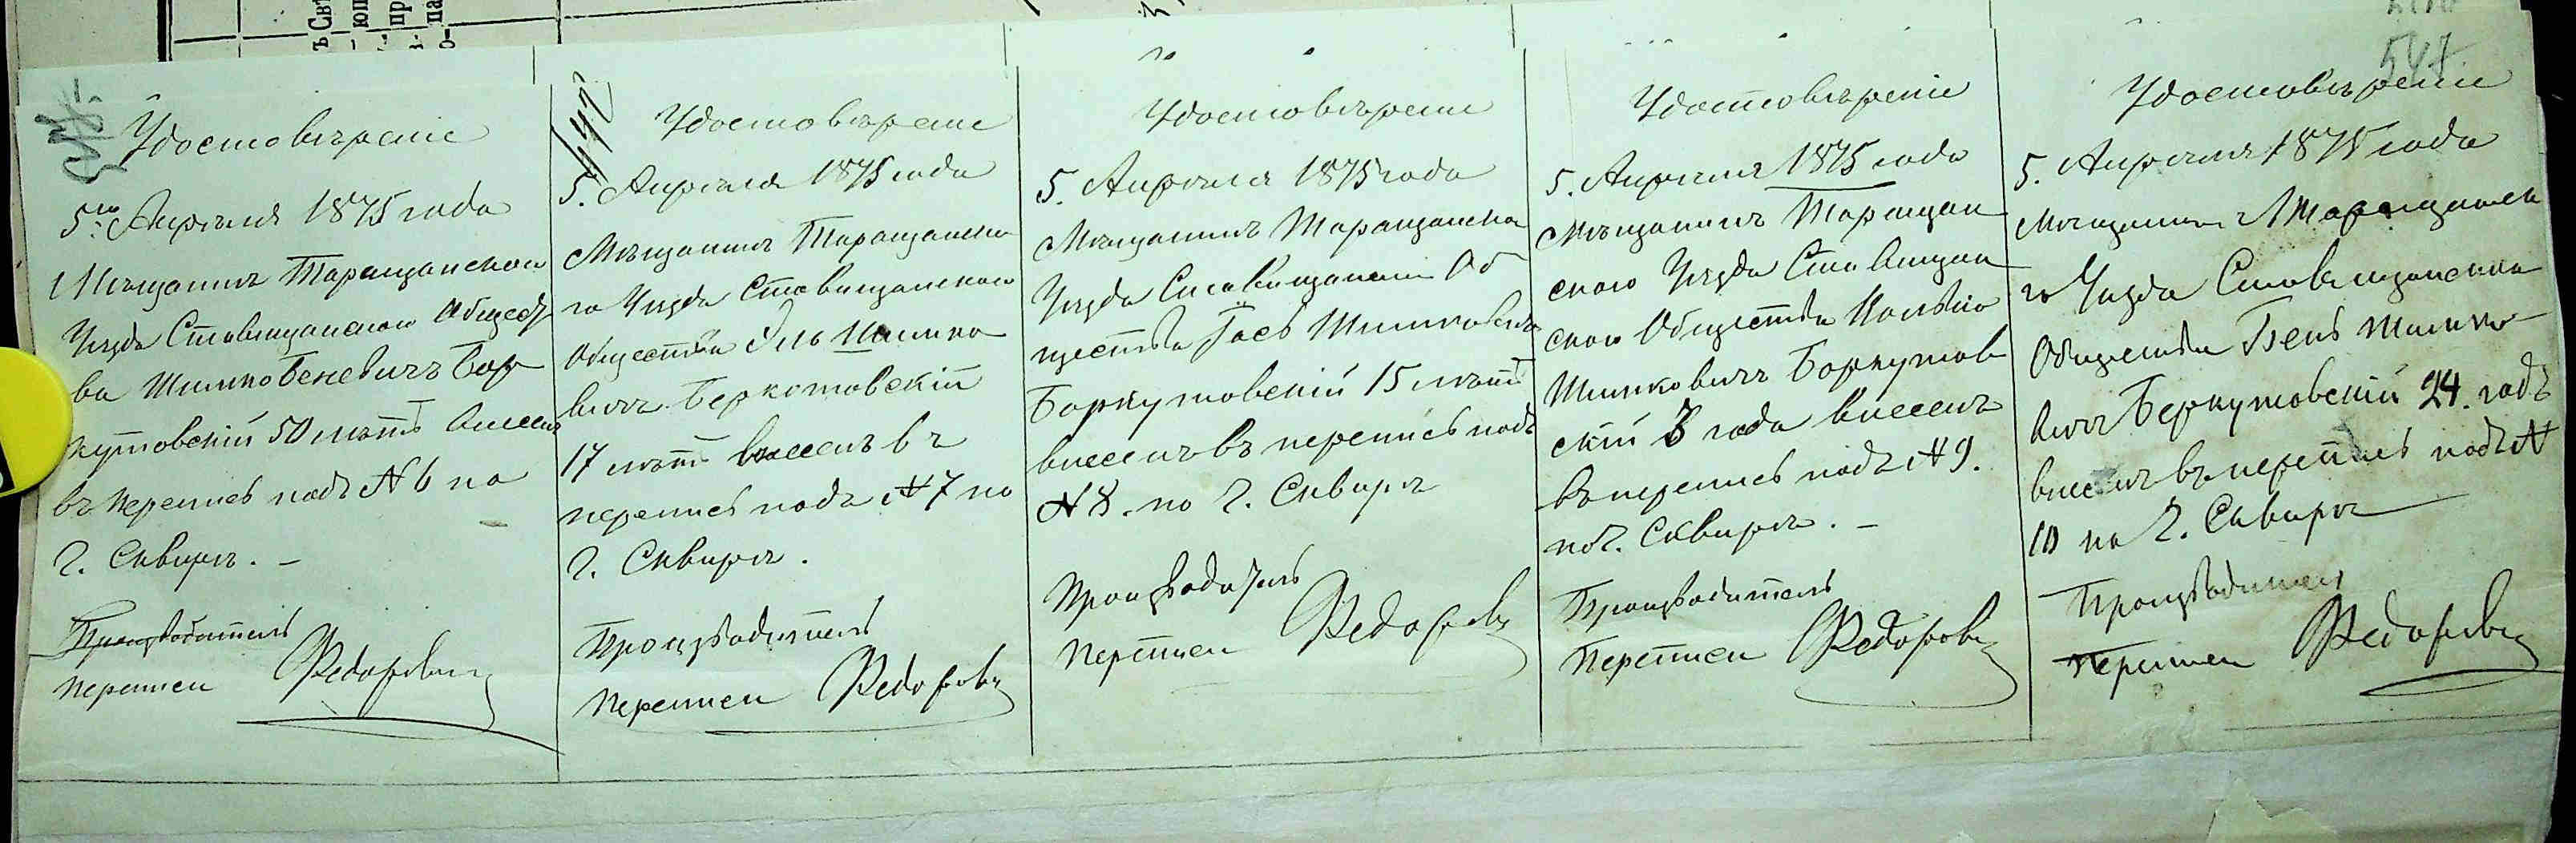 Удостовѣреніе
5го Апрѣля 1875 года
Мѣщанинъ Таращанскаго
Уѣзда Ставищанскаго Общест
ва Шимко Беневичъ Бор
кутовскій 50 лѣтъ внесенъ
въ перепись подъ № 6 по
г. Сквирѣ. –
Производитель
переписи Федоровъ
Удостовѣреніе
5. Апрѣля 1875 года
Мѣщанинъ Таращанска
го Уѣзда Ставищанскаго
Общества Эль Шимко
вичъ Беркотовскій
17 лѣтъ внесенъ въ
перепись подъ № 7 по
г. Сквирѣ.
Производитель
переписи Федоровъ
Удостовѣреніе
5. Апрѣля 1875 года
Мѣщанинъ Таращанска
Уѣзда Ставищанскаго Об
щества Іось Шимковичъ
Боркутовскій 15 лѣтъ
внесенъ въ перепись подъ
№ 8. по г. Сквирѣ
Производитель
переписи Федоровъ
Удостовѣреніе
5. Апрѣля 1875 года
Мѣщанинъ Таращан
скаго Уѣзда Ставищан
скаго Общества
Шимковичъ Боркутов
скій 3 года внесенъ
въ перепись подъ № 9.
по г. Сквирѣ. –
Производитель
Переписи Федоровъ
547
Удостовѣреніе
5. Апрѣля 1875 года
Мѣщанинъ Таращанска
го Уѣзда Ставищанскаго
Общества Бень Шимко
вичъ Беркутовскій 24. годъ
внесенъ въ перепись подъ №
10 по г. Сквирѣ
Производитель
переписи Федоровъ